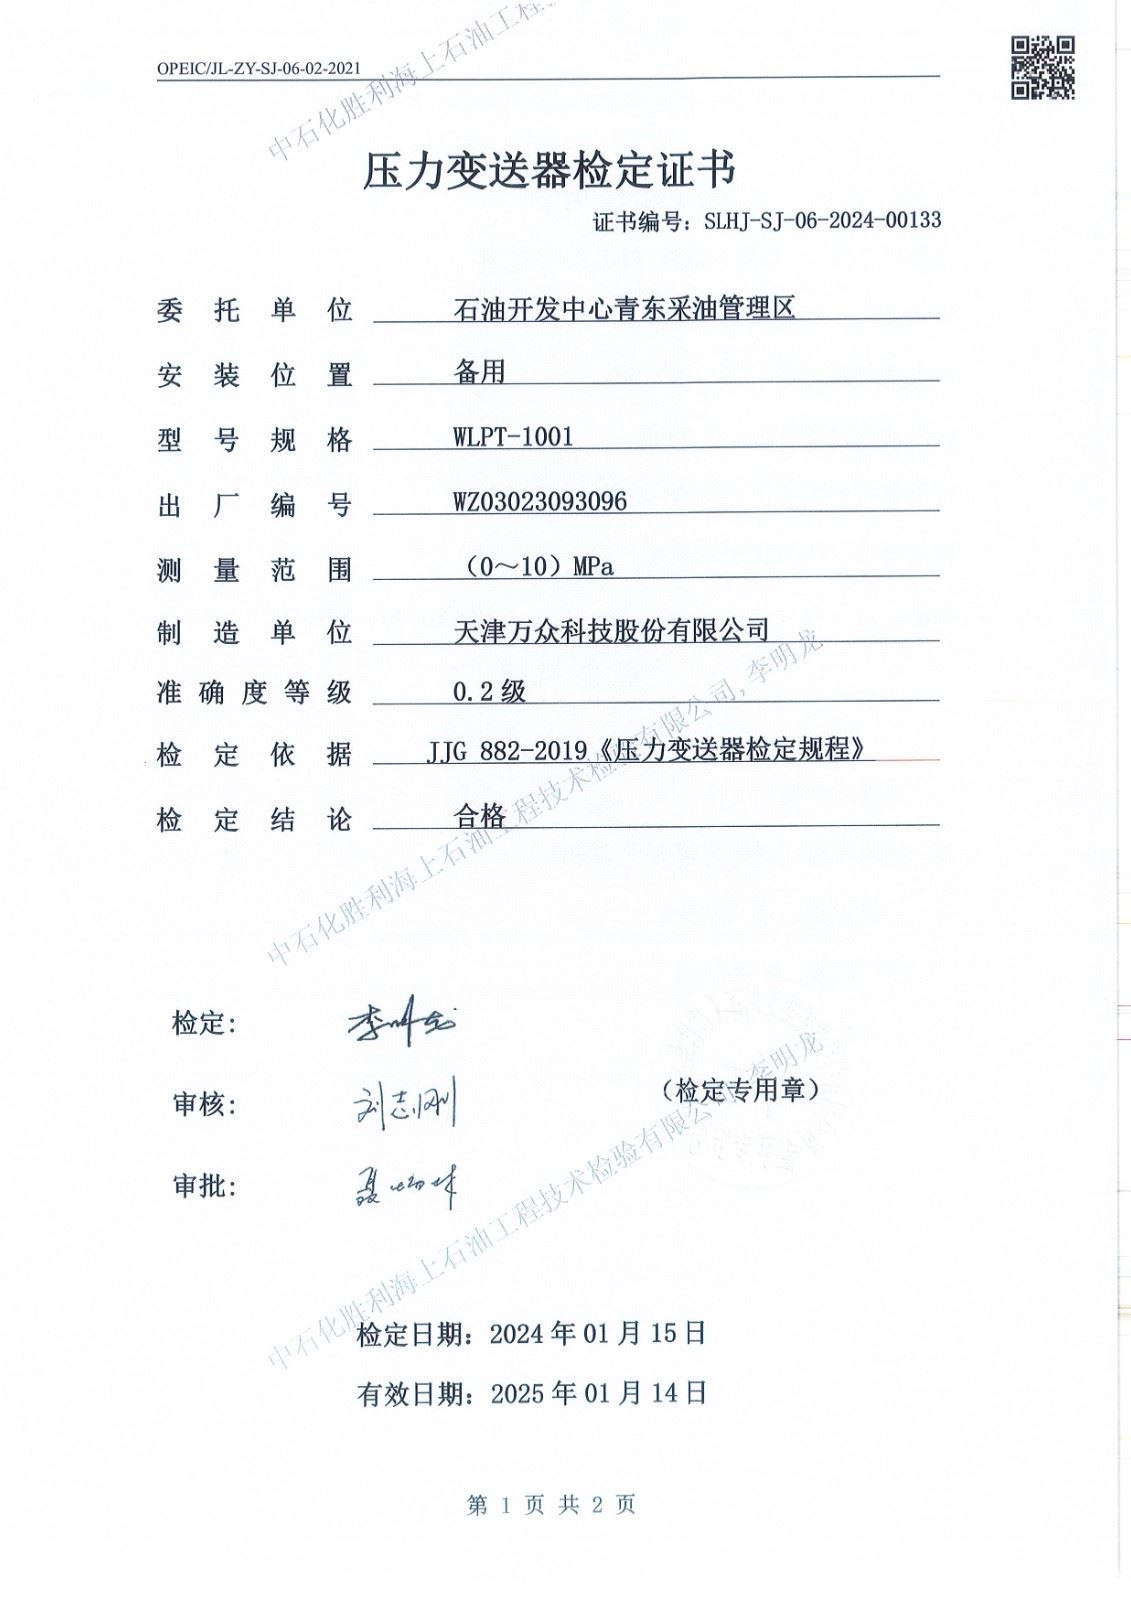 OPEIC/JL-ZY-SJ-06-02-2021
压力变送器检定证书
证书编号：SLHJ-SJ-06-2024-00133
委托单位 石油开发中心青东采油管理区
安装位置 备用
型号规格 WLPT-1001
出厂编号 WZ03023093096
测量范围 （0～10）MPa
制造单位 天津万众科技股份有限公司
准确度等级 0.2级
检定依据 JJG 882-2019《压力变送器检定规程》
检定结论 合格
检定： 李明龙
审核： 刘志刚
（检定专用章）
审批：
检定日期：2024年01月15日
有效日期：2025年01月14日
第 1 页 共 2 页
中石化胜利海上石油工程
中石化胜利海上石油工程技术检验有限公司, 李明龙
中石化胜利海上石油工程技术检验有限公司, 李明龙